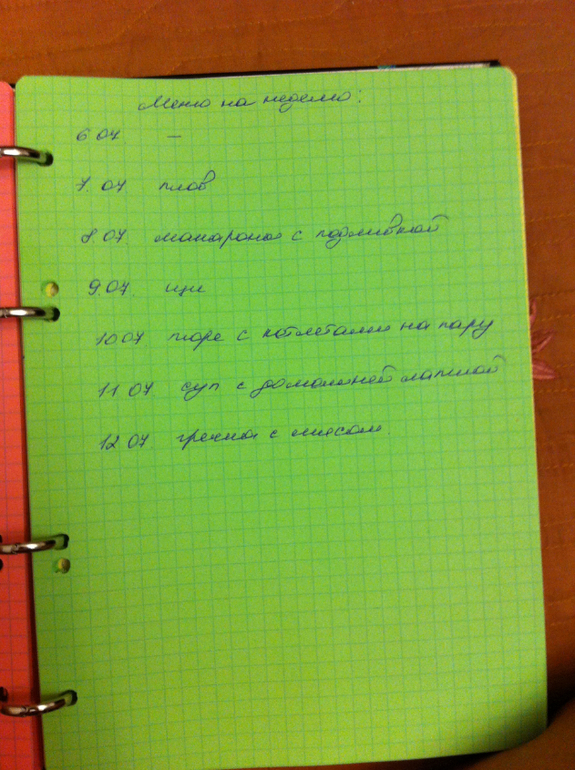 Меню на неделю:
6.07. —
7.07. плов
8.07 макароны с подливкой
9.07. щи
10.07 пюре с котлетами на пару
11.07 суп с домашней лапшой
12.07. гречка с мясом.